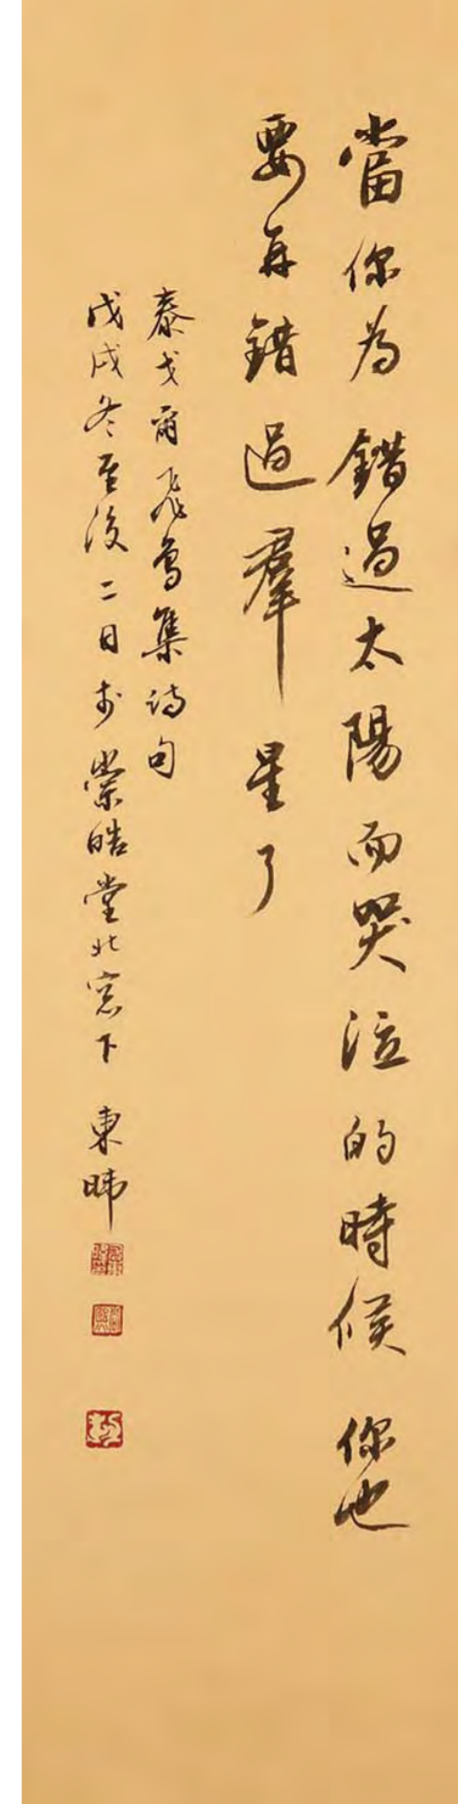 當你為錯過太陽而哭泣的時候你也
要再錯過羣星了
泰戈爾飛鳥集詩句
戊戌冬至後二日於崇皓堂北窓下 東暐